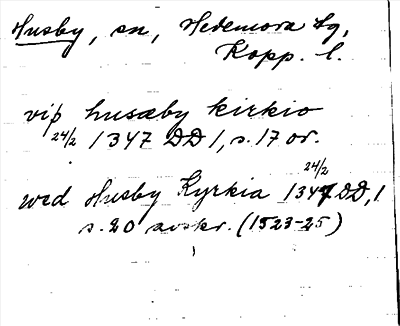 Husby, sn, Hedemora tg,
Kopp. l.
viþ husæby kirkio
24/2 1347 DD 1, s. 17 or.
wed Husby Kyrkia 24/2 1347 DD, 1
s. 20 avskr. (1523-25)